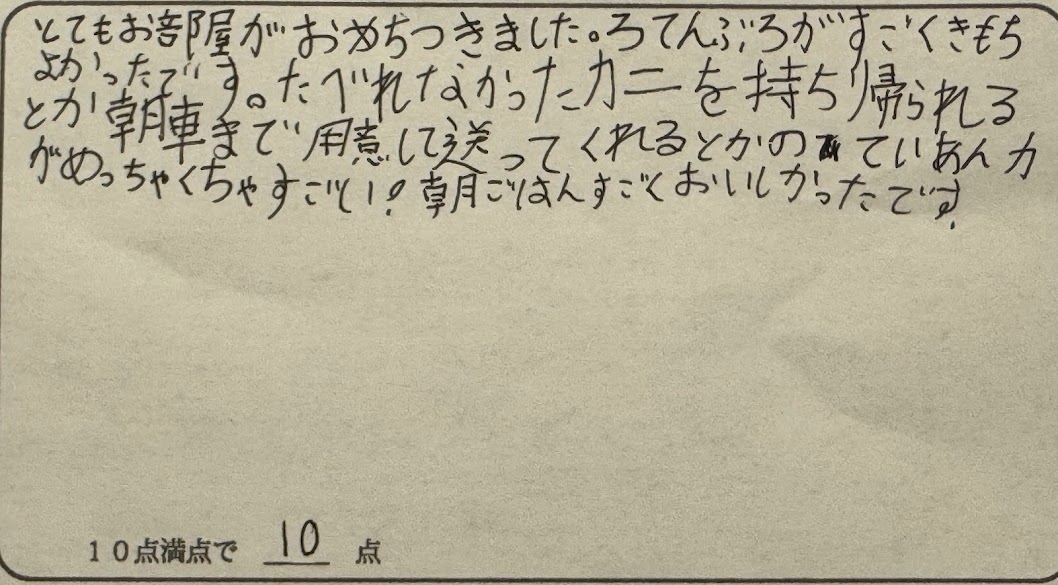 とてもお部屋がおめちつきました。ろてんぶろがすごくきもち
よかったです。たべれなかったカニを持ち帰られる
とか朝車まで用意して送ってくれるとかのていあん力
がめっちゃくちゃすごい!朝ごはんすごくおいしかったです
10点満点で 10 点